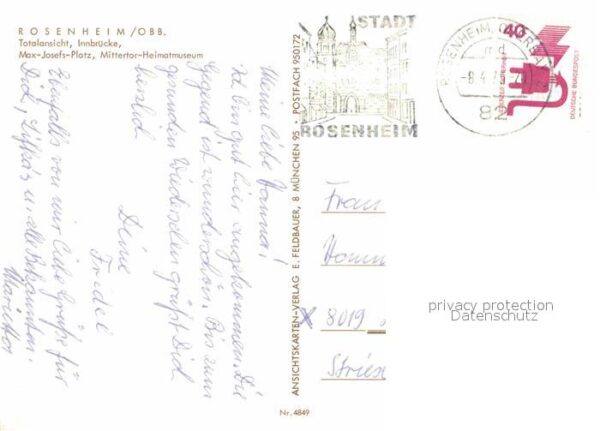 ROSENHEIM/OBB.
Totalansicht, Innbrücke,
Max-Josefs-Platz, Mittertor-Heimatmuseum
Meine liebe Hanna!
Ich bin gut hier angekommen. Die
Gegend ist wunderschön. Bis zum
gesunden Wiedersehn grüßt Dich
herzlich
Deine
Friedel
Ebenfalls von mir liebe Grüße für
Dich, u. alle Bekannten.
ANSICHTSKARTEN-VERLAG E. FELDBAUER, 8 MÜNCHEN 95 · POSTFACH 950172
Nr. 4849
STADT
ROSENHEIM
ROSENHEIM,
82
40
DEUTSCHE BUNDESPOST
Frau
8019
privacy protection
Datenschutz